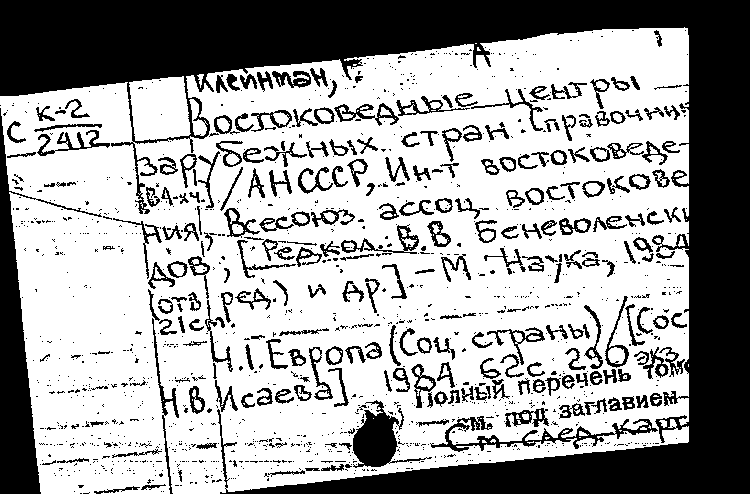 Клейнман, Г. А
С К-2
2412
Востоковедные центры
зарубежных стран: Справочник
[В 4-х ч.] / АН СССР, Ин-т востоковеде-
ния, Всесоюз. ассоц. востокове
дов; [Редкол.: В.В. Беневоленски
(отв. ред.) и др.] - М.: Наука, 1984
21 см.
Ч.1. Европа (Соц. страны) / [Сост
Н.В. Исаева]. 1984. 62 с. 290 экз.
Полный перечень томо
см. под заглавием
См. след. карт